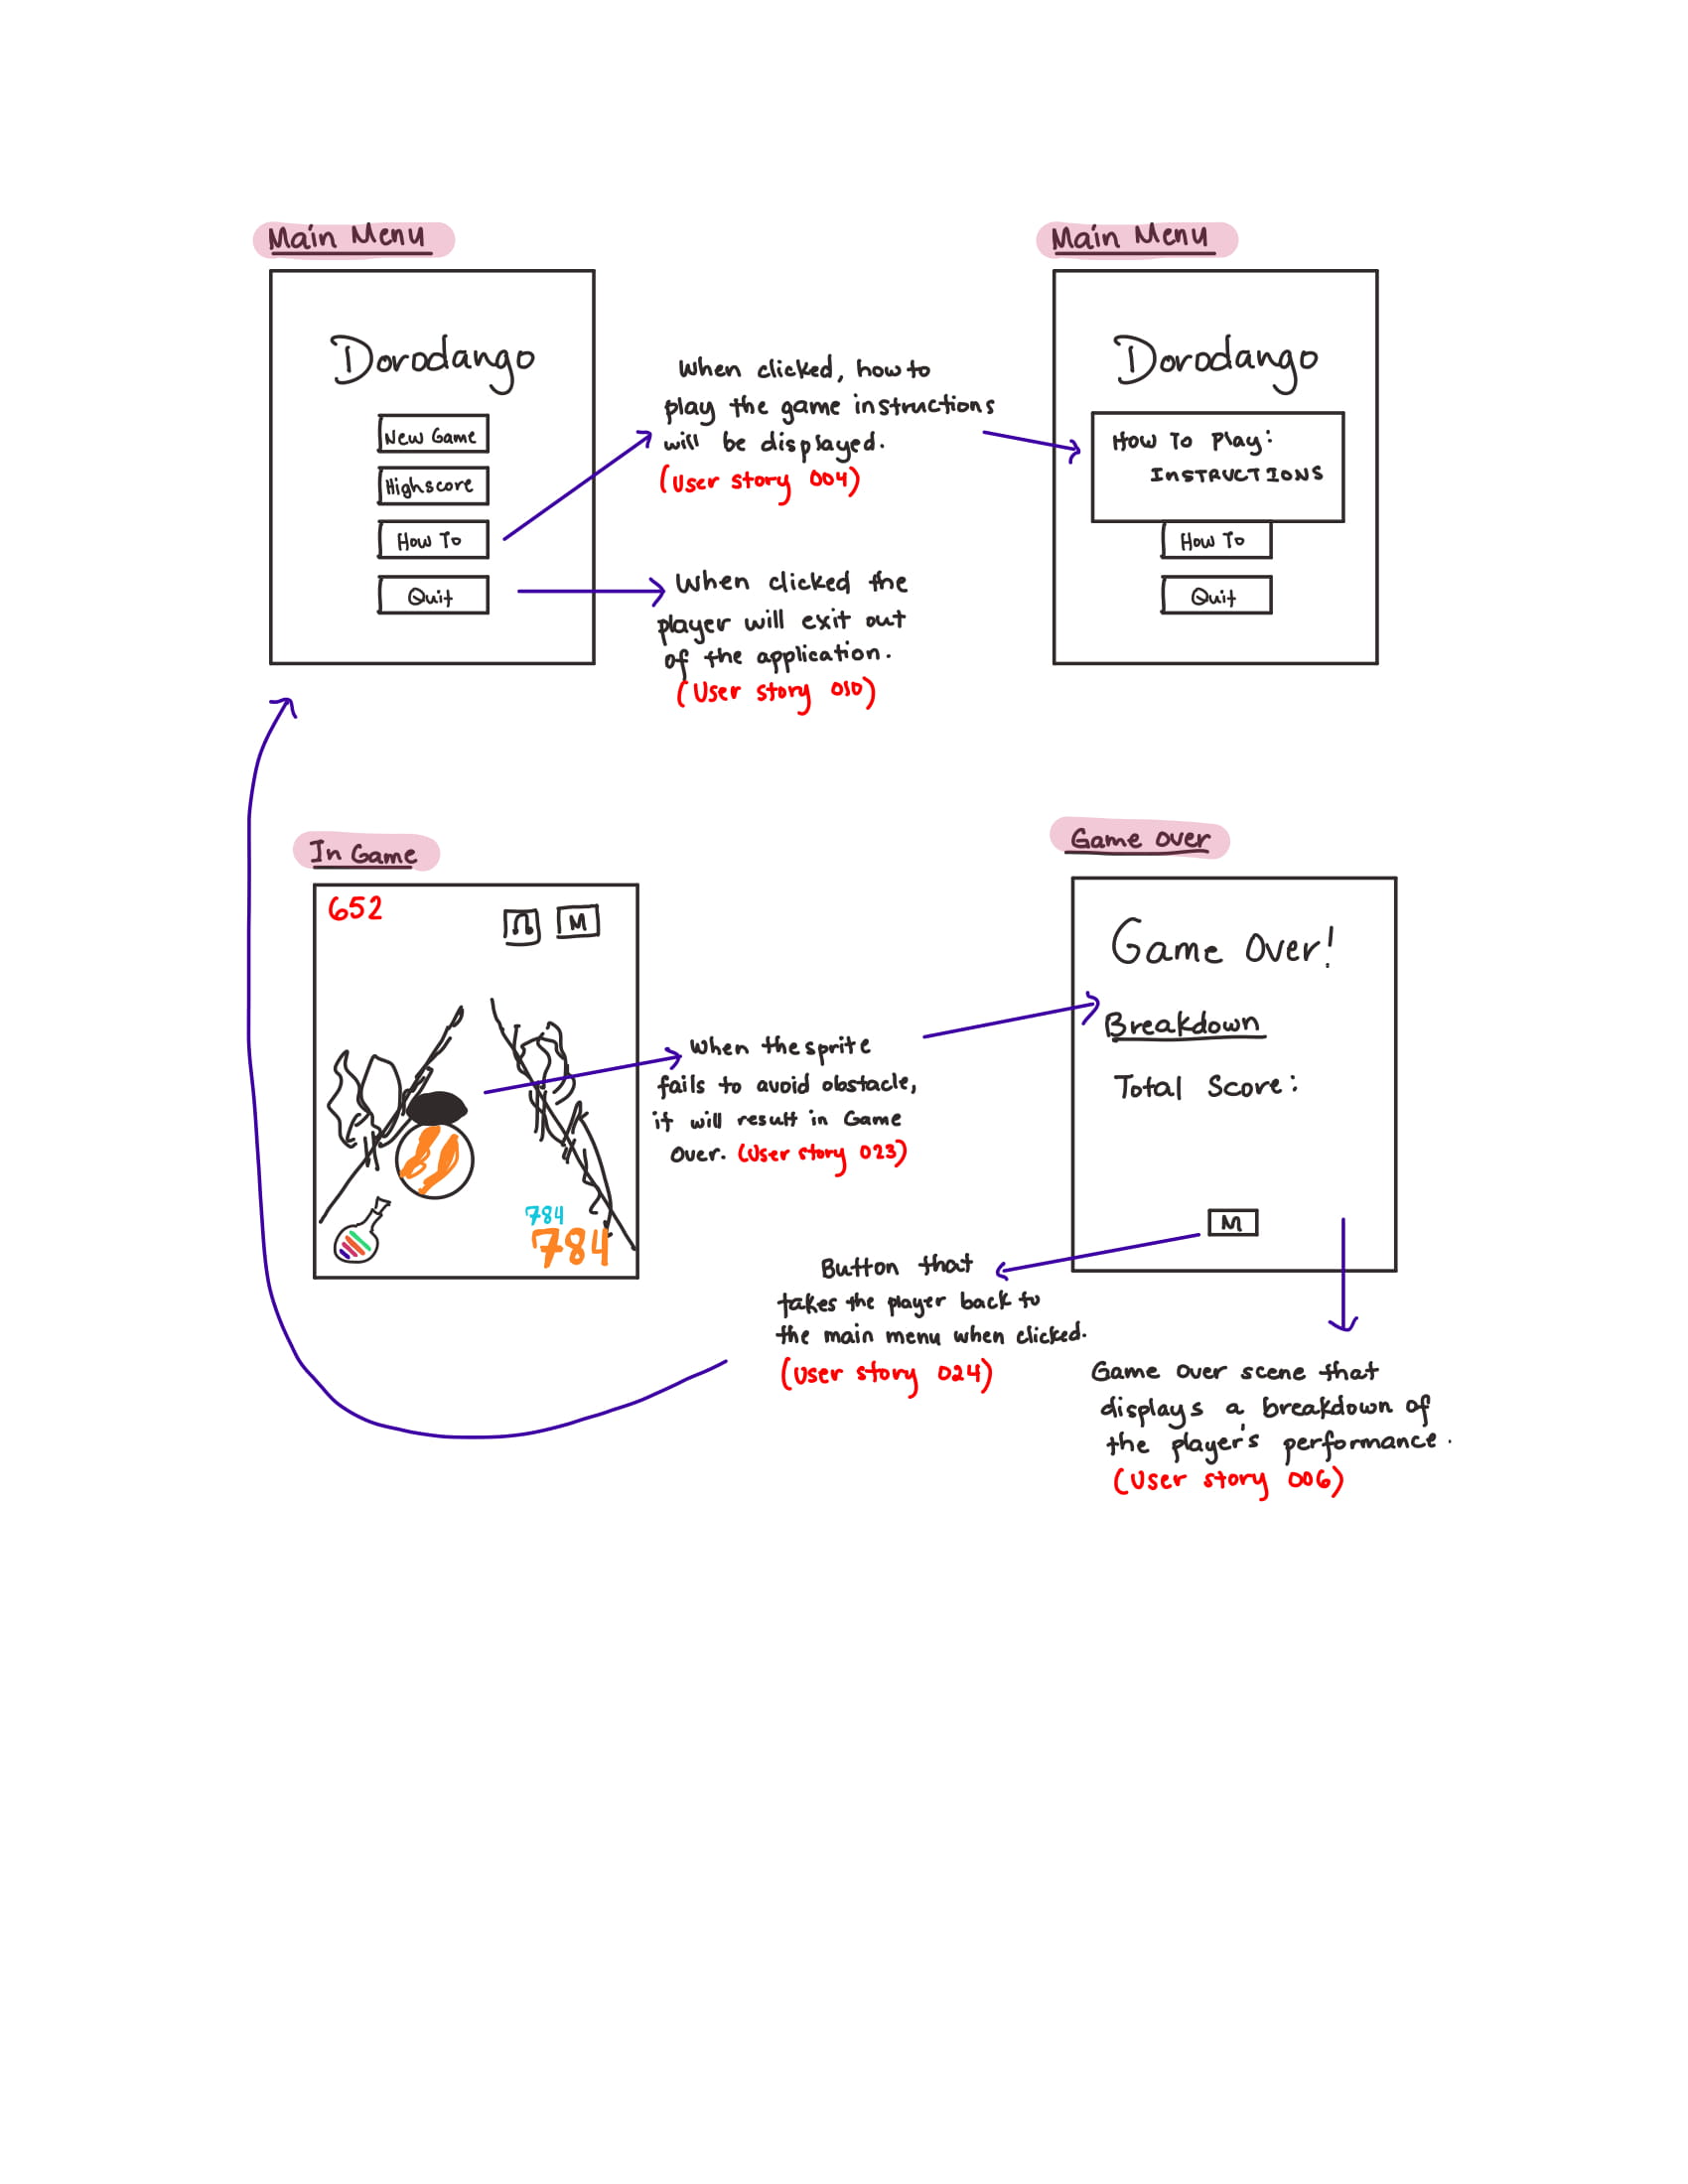 Main Menu
Dorodango
New Game
Highscore
How To
Quit
When clicked, how to
play the game instructions
will be displayed.
(User story 004)
When clicked the
player will exit out
of the application.
(User story 010)
Main Menu
Dorodango
How To Play:
INSTRUCTIONS
How To
Quit
In Game
652
M
784
784
When the sprite
fails to avoid obstacle,
it will result in Game
Over. (User story 023)
Game Over
Game Over!
Breakdown
Total Score:
M
Button that
takes the player back to
the main menu when clicked.
(User story 024)
Game Over scene that
displays a breakdown of
the player's performance.
(User story 006)